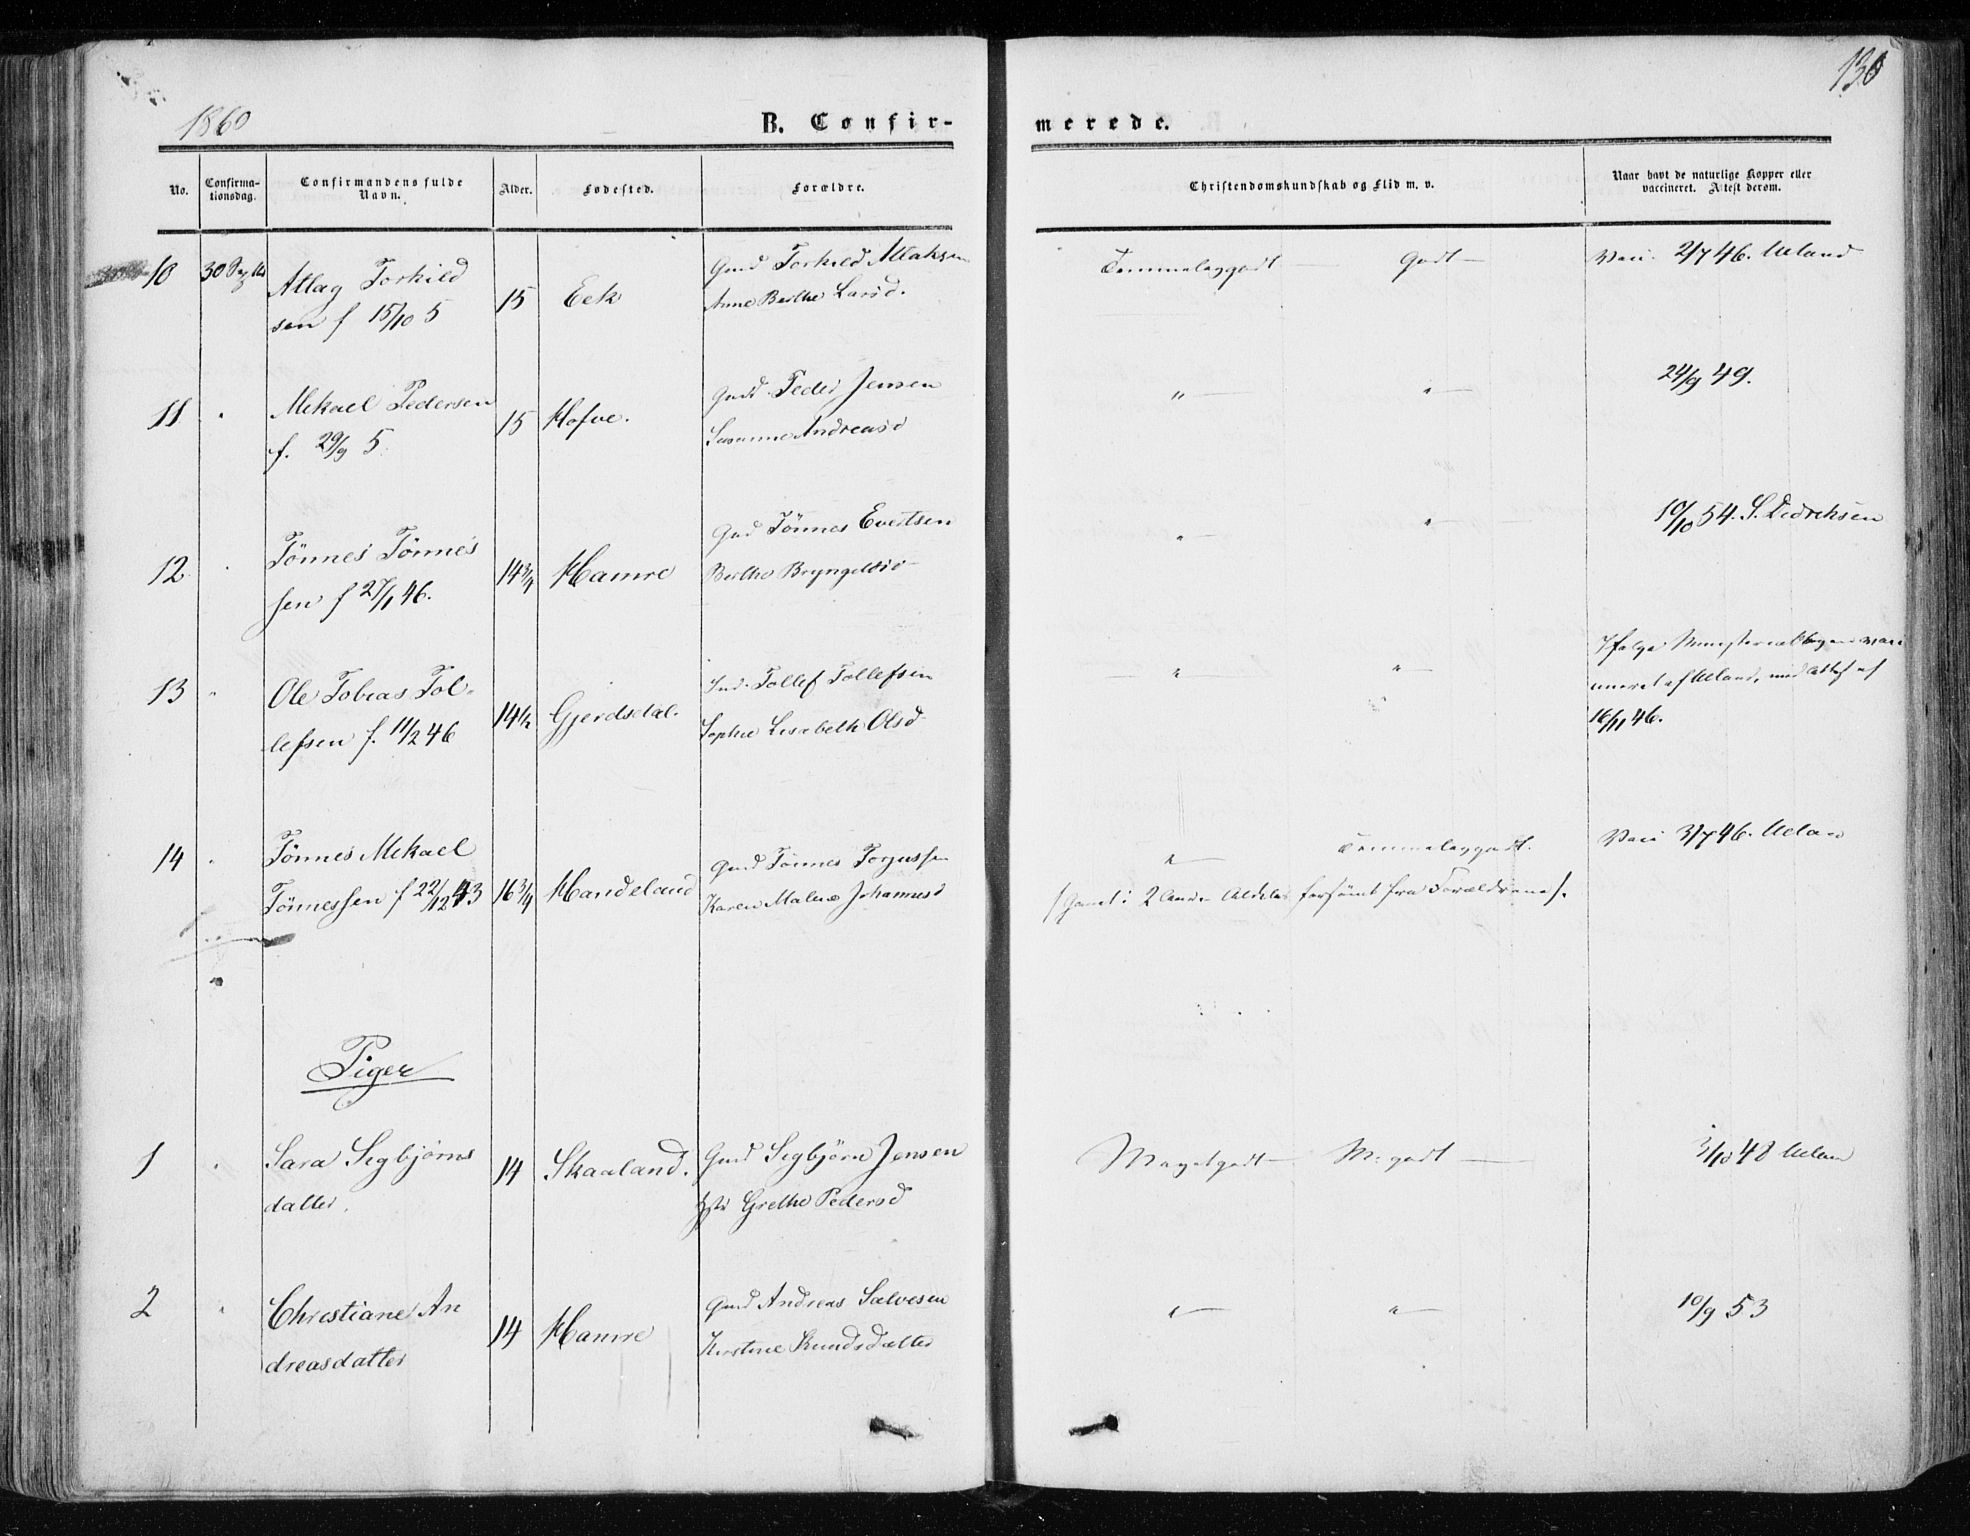 130
1860
B. Confir-
merede.
No.
Confirma-
tionsdag.
Confirmandens fulde
Navn.
Alder.
Fødested.
Forældre.
Christendomskundskab og Flid m. v.
Naar havt de naturlige Kopper eller
vaccineret. Attest derom.
10
30
Atlag Torkild
sen f 15/10 5
15
Eek
Gmd Torkild Atlaksen
Anne Berthe Larsd.
Temmeleggodt
Godt
Vacc. 2/7 46. Ueland
11
Mikael Pedersen
f. 29/9 5
15
Hofve.
Gmd Peder Jensen
Susanne Andreasd
"
"
24/9 49.
12
Tönnes Tönnes
sen f 27/1 46.
14 3/4
Hamre
Gmd Tönnes Evertsen
Berthe Bryngelsd
"
"
10/10 54. S. Didriksen
13
Ole Tobias Tol-
lefsen f. 11/2 46
14 1/2
Gjerdsdal.
Ind. Tollef Tollefsen
Sophie Lisabeth Olsd
"
"
Ifølge Ministerialbogen vacci
neret af Ueland, med Attest af
16/11 46.
14
Tönnes Mikael
Tönnessen f 22/12 43
16 3/4
Handeland
Gmd Tönnes Torjussen
Karen Malene Johannesd
"
Temmeleggodt.
Vacc 3/7 46. Ueland
/Gaaet i 2 Aar forsömt fra Forældrene/.
Piger
1
Sara Sigbjörns
datter.
14
Skaaland.
Gmd Sigbjörn Jensen
Grethe Pedersd
Megetgodt
M. godt
3/10 48 Ueland
2
Christiane An
dreasdatter
14
Hamre
Gmd Andreas Salvesen
Kirstine Knudsdatter
"
"
10/9 53